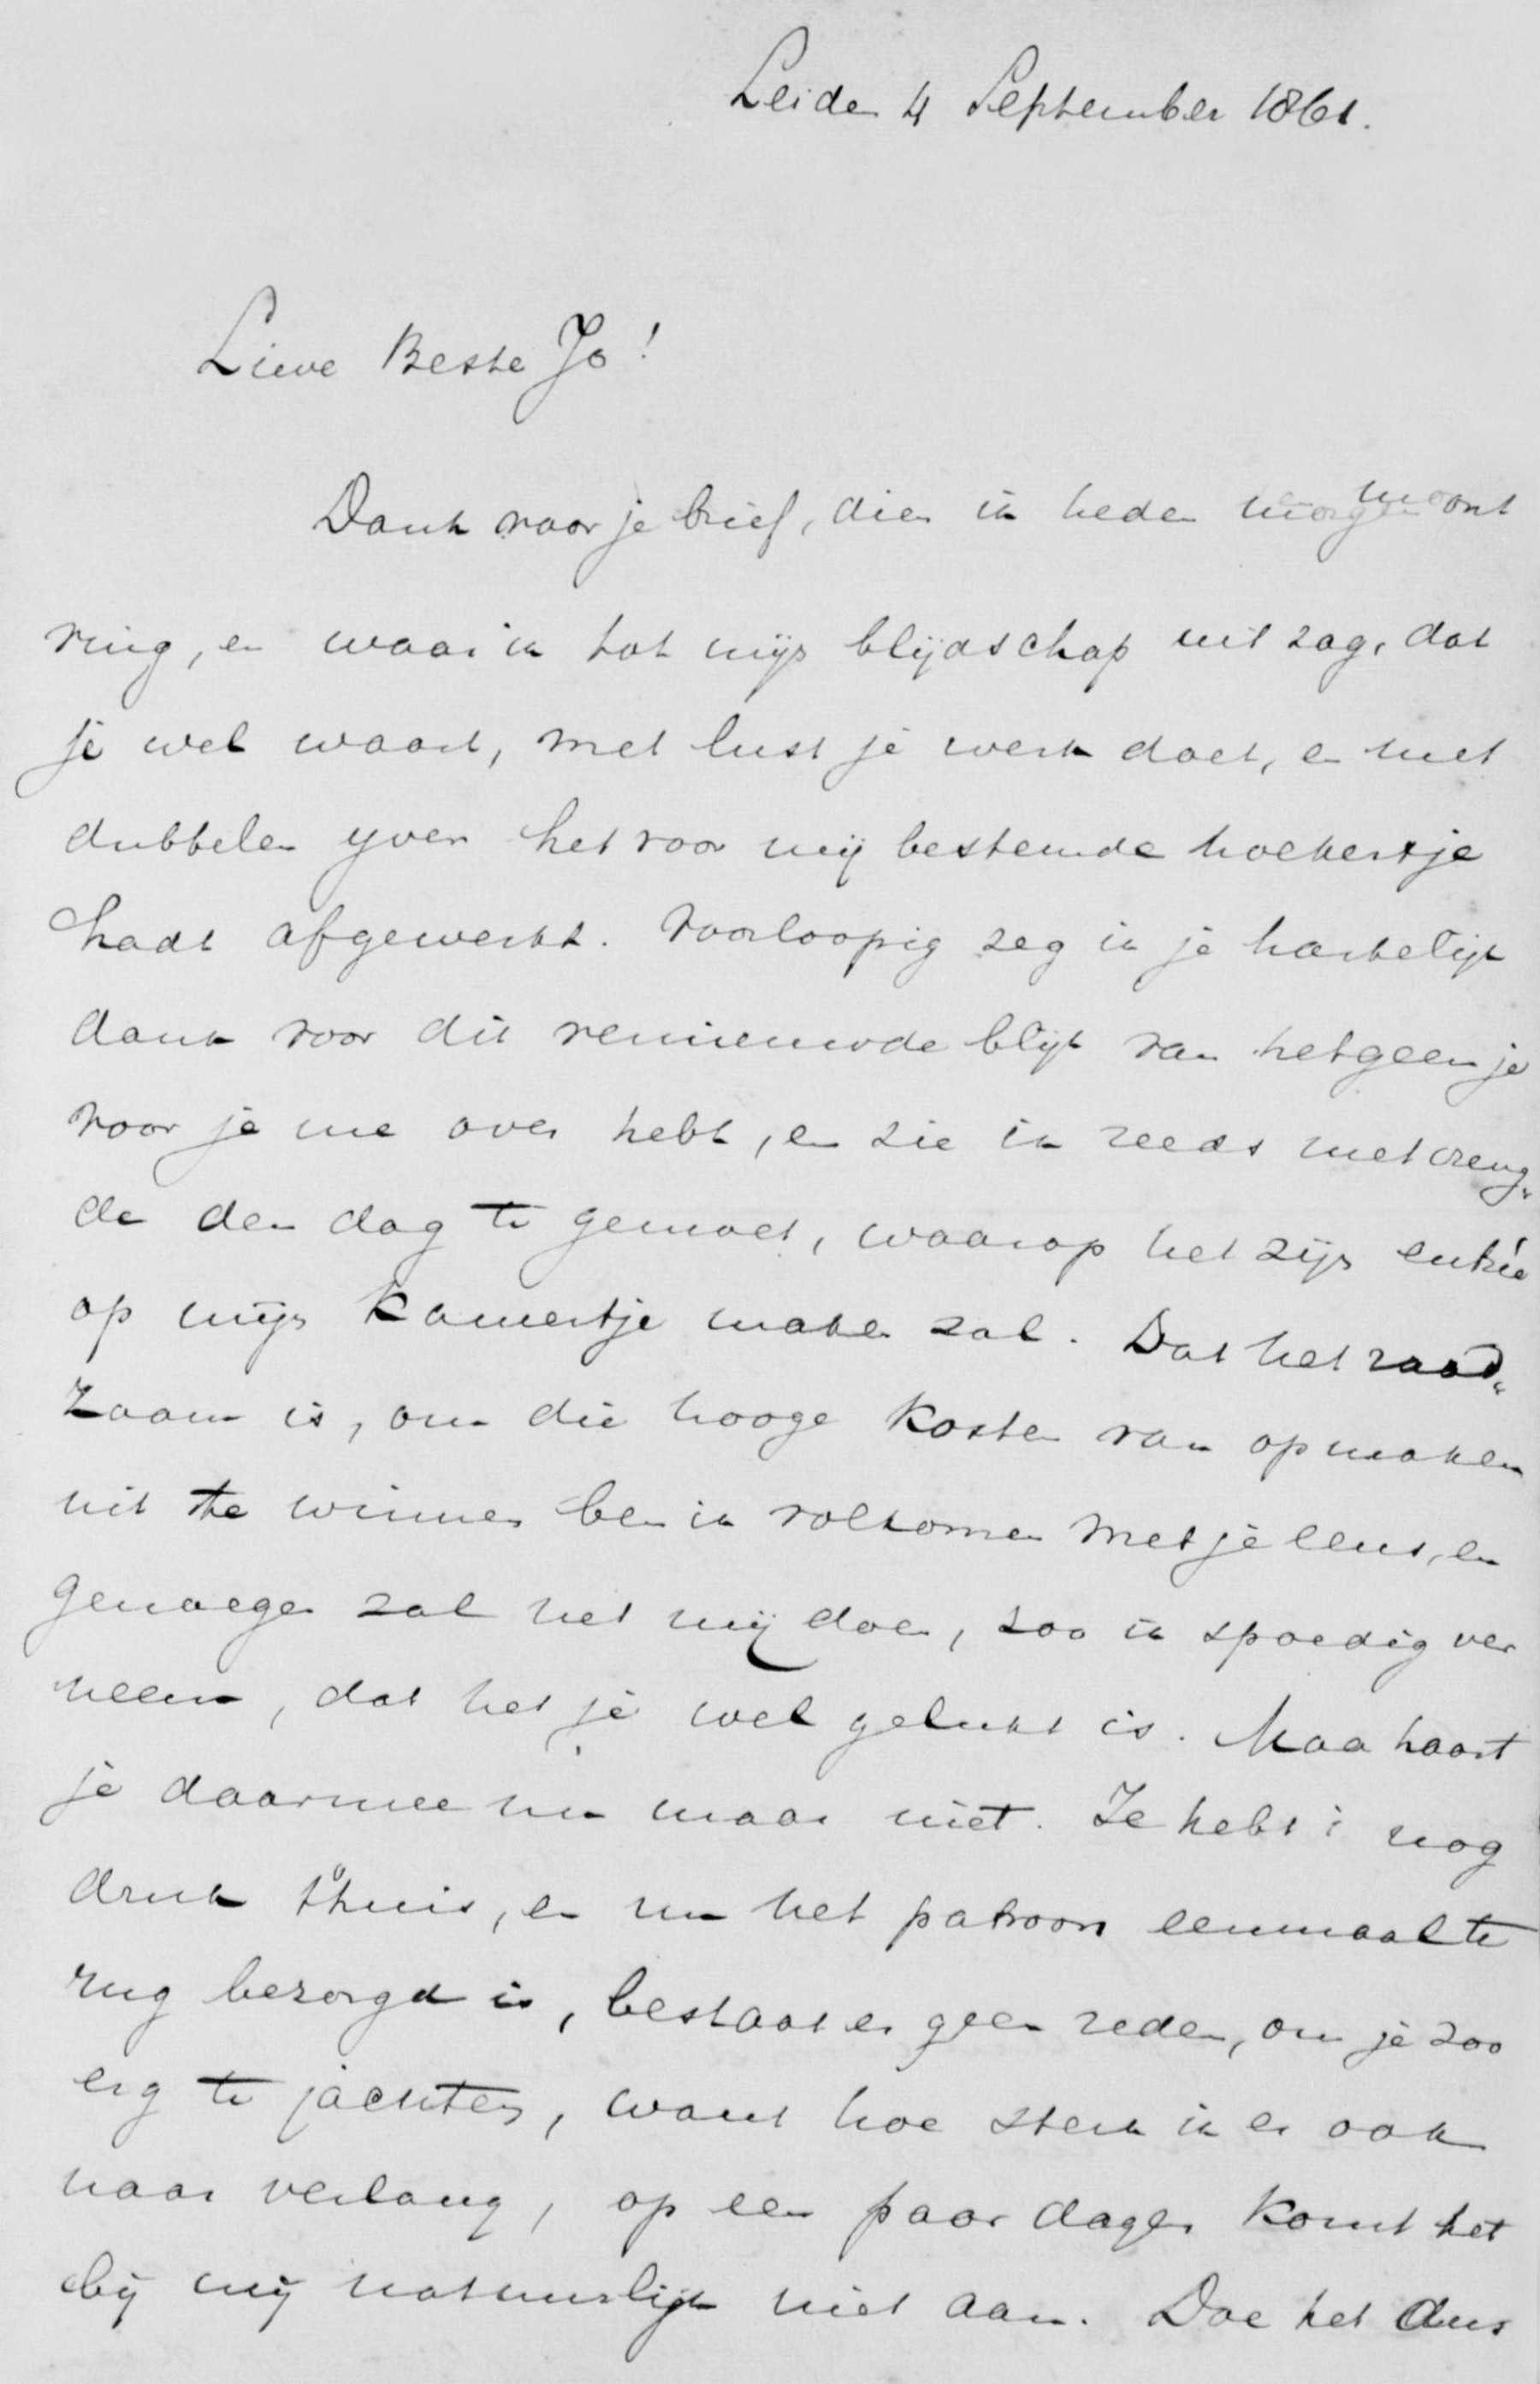 Leiden 4 September 1861.
Lieve Beste Jo!
Dank voor je brief, dien ik heden morgen ont
ving, en waar ik tot mijn blijdschap uit zag, dat
je wel waart, met lust je werk doet, en met
dubbelen yver het voor mij bestemde hoekertje
hadt afgewerkt. Voorloopig zeg ik je hartelijk
dank voor dit vernieuwde blijk van hetgeen je
voor je me over hebt, en zie ik reeds met vreug„
de den dag te gemoet, waarop het zijn entrée
op mijn kamertje maken zal. Dat het raad„
zaam is, om die hooge kosten van opmaken
uit te winnen ben ik volkomen met je eens, en
genoegen zal het mij doen, zoo ik spoedig ver
neem, dat het je wel gelukt is. Maa haast
je daarmee nu maar niet. Je hebt i nog
druk t'huis, en nu het patroon eenmaal te
rug bezorgd is, bestaat er geen reden, om je zoo
erg te jachten, want hoe sterk ik er ook
naar verlang, op een paar dagen komt het
bij mij natuurlijk niet aan. Doe het dus